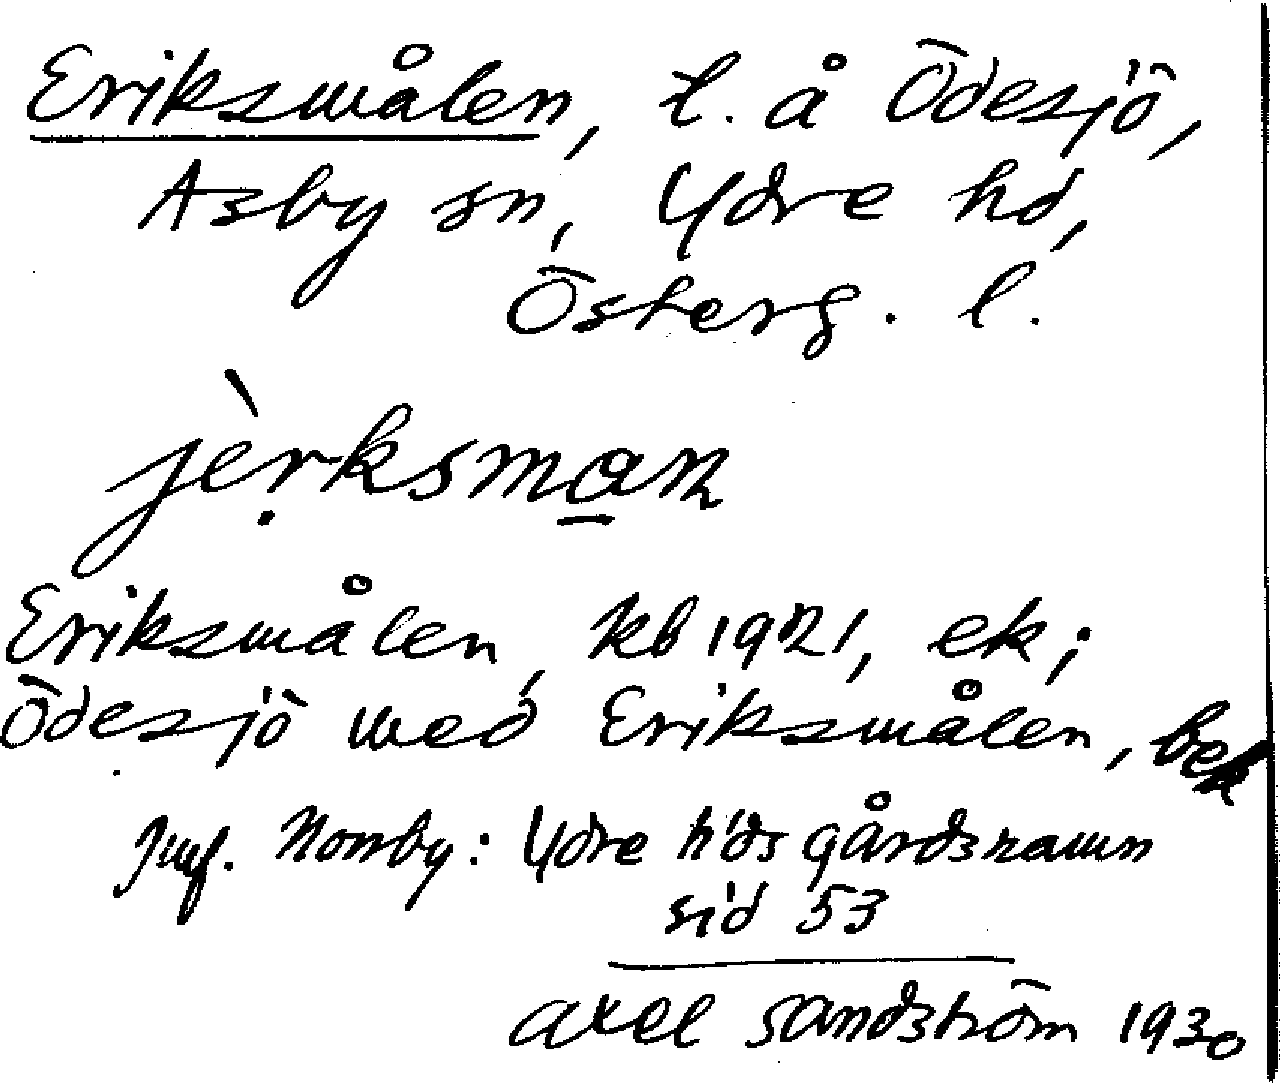 Eriksmålen, t. å Ödesjö,
Asby sn, Ydre hd,
Österg. l.
jèṛksmo̲n
Eriksmålen, kb 1921, ek;
Ödesjö med Eriksmålen, bek
Jmf. Nornby: Ydre h'ds gårdsnamn
sid 53
axel sandström 1930